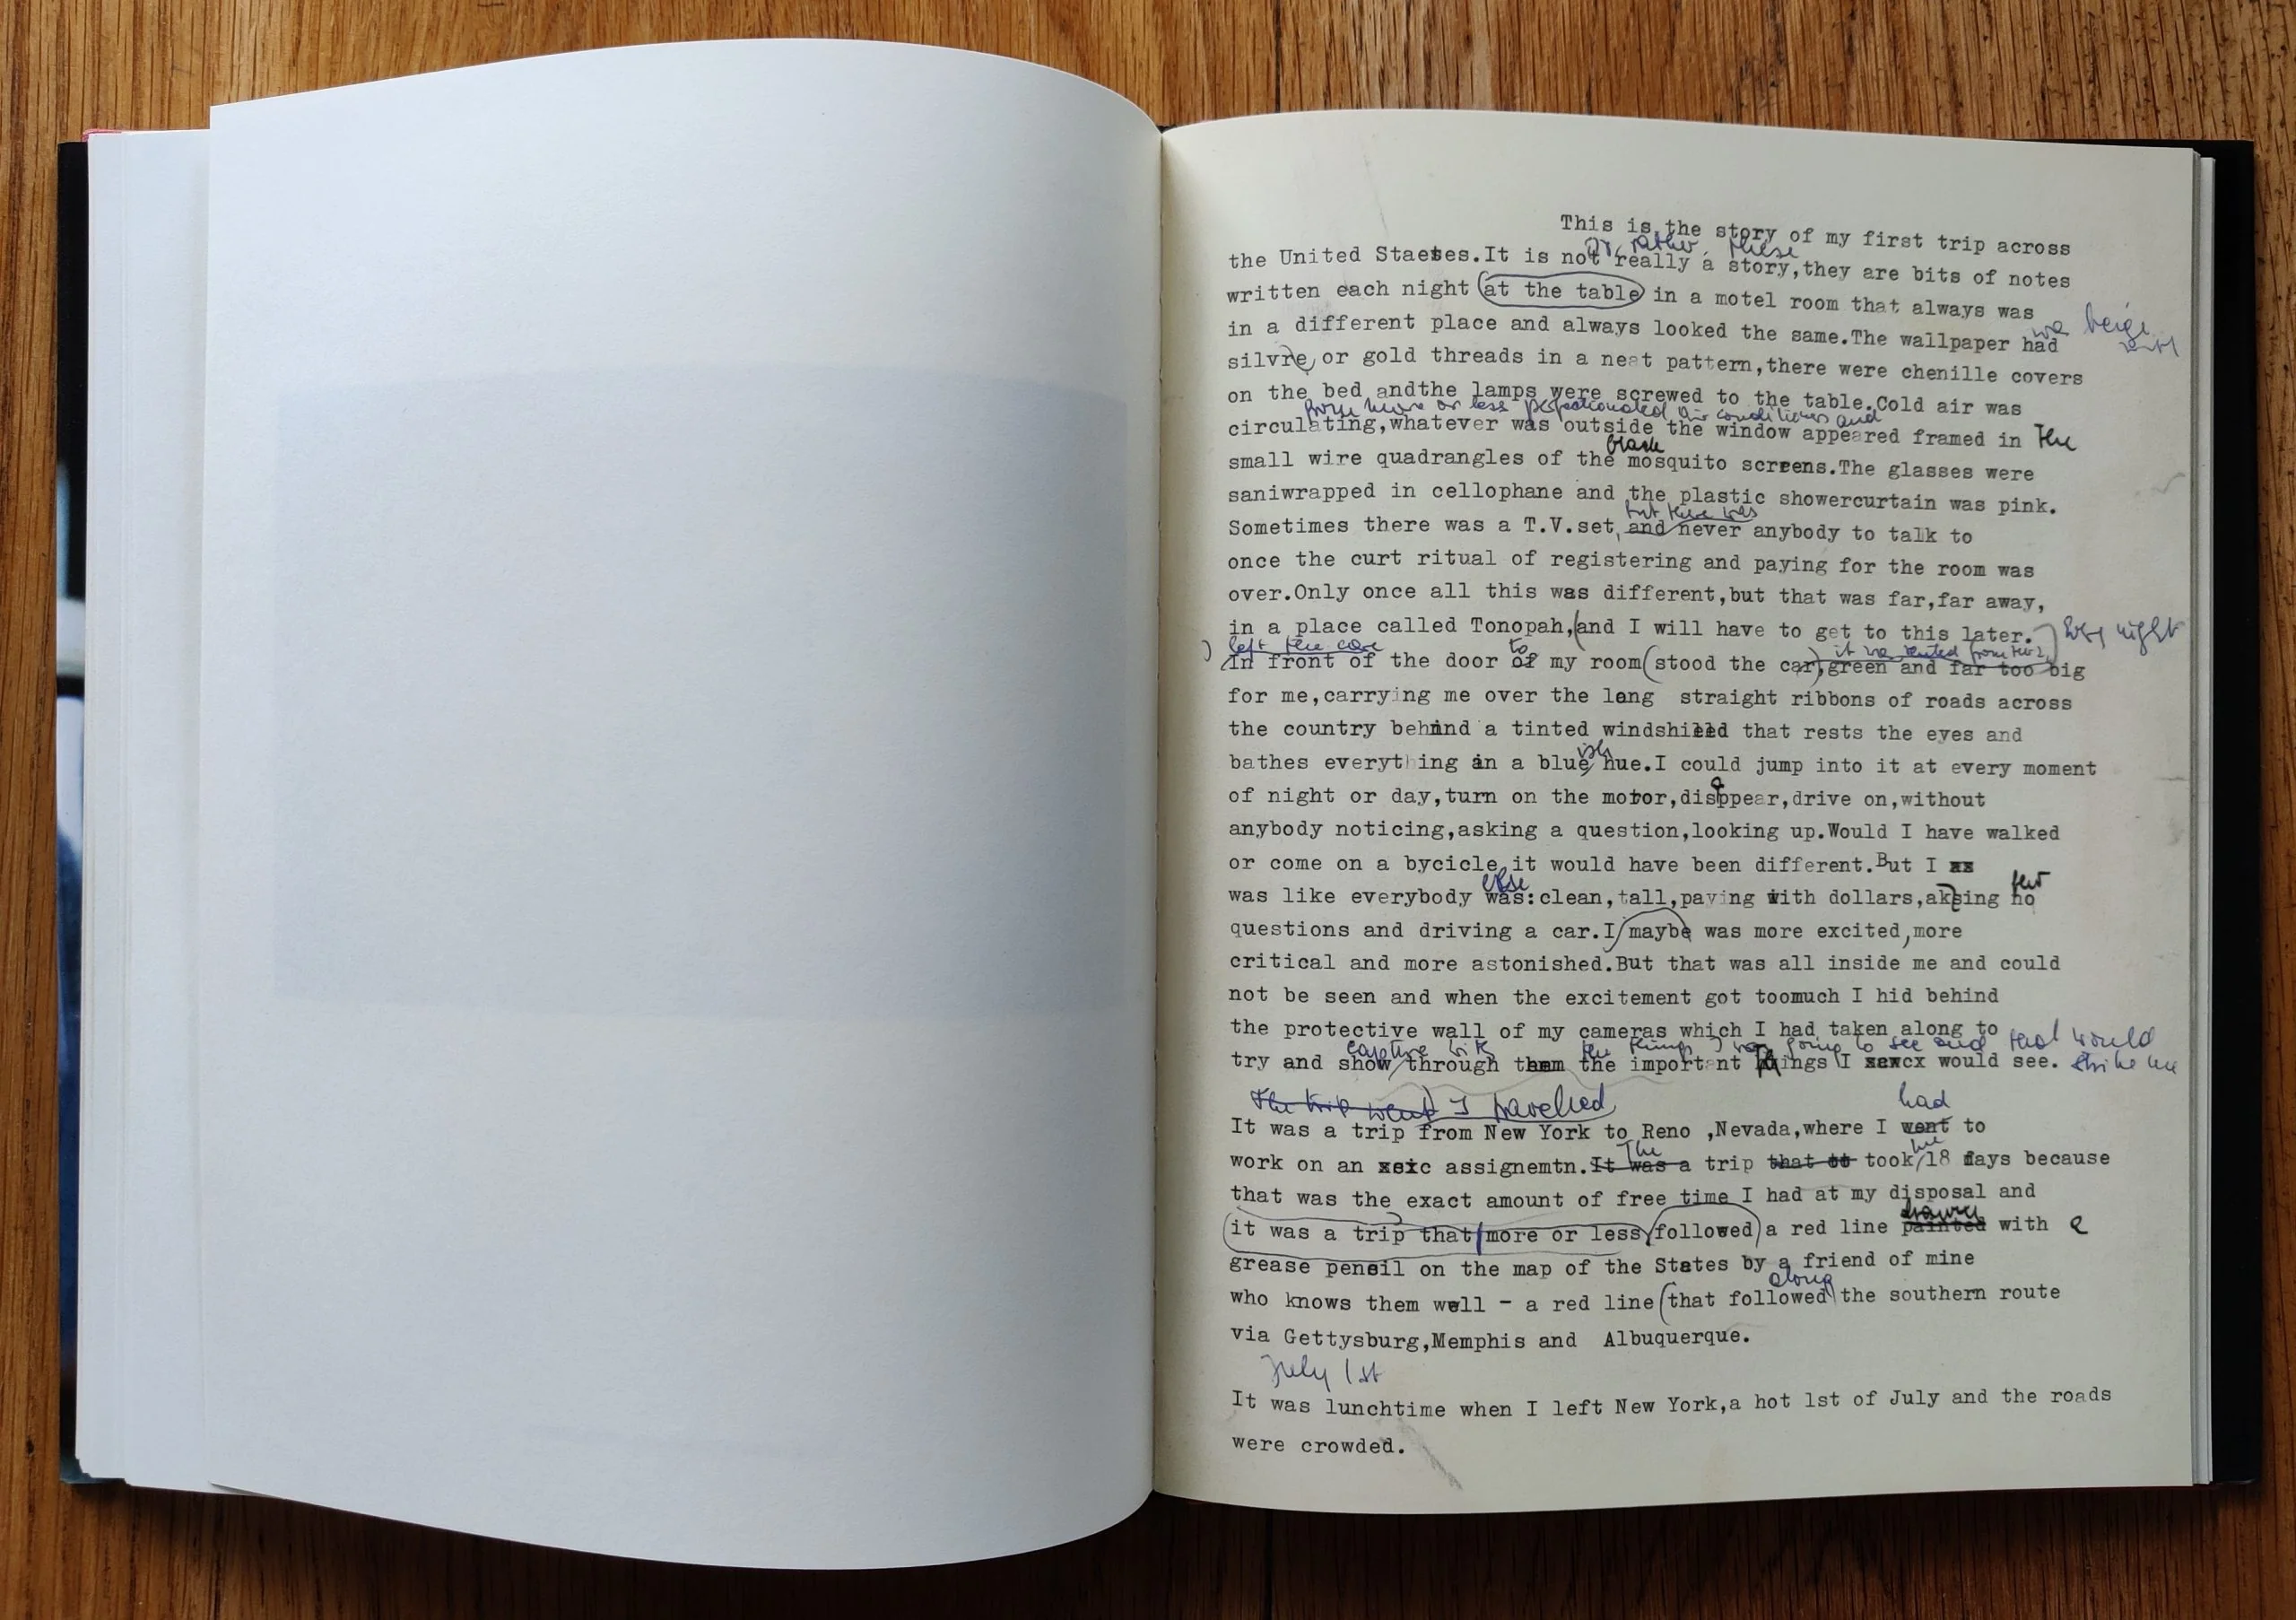 This is the story of my first trip across
Or, rather, these
the United Staetes.It is not really a story,they are bits of notes
written each night at the table in a motel room that always was
in a different place and always looked the same.The wallpaper had
was beige with
silvre or gold threads in a neat pattern,there were chenille covers
on the bed andthe lamps were screwed to the table.Cold air was
from more or less air conditioners and
circulating,whatever was outside the window appeared framed in the
black
small wire quadrangles of the mosquito screens.The glasses were
saniwrapped in cellophane and the plastic showercurtain was pink.
but there was
Sometimes there was a T.V.set, and never anybody to talk to
once the curt ritual of registering and paying for the room was
over.Only once all this was different,but that was far,far away,
in a place called Tonopah,and I will have to get to this later.
night
left the car to it was rented from
In front of the door of my room stood the car,green and far too big
for me,carrying me over the long straight ribbons of roads across
the country behind a tinted windshield that rests the eyes and
ish
bathes everything in a blue hue.I could jump into it at every moment
a
of night or day,turn on the motor,disppear,drive on,without
anybody noticing,asking a question,looking up.Would I have walked
or come on a bycicle,it would have been different.But I as
else few
was like everybody was:clean,tall,paying with dollars,aksing no
questions and driving a car.I maybe was more excited,more
critical and more astonished.But that was all inside me and could
not be seen and when the excitement got toomuch I hid behind
the protective wall of my cameras which I had taken along to
capture with the things I was going to see and that would
try and show through them the important things I would see. strike me
The trip went I travelled had
It was a trip from New York to Reno ,Nevada,where I went to
The me
work on an assignemtn.It was a trip that it took 18 days because
that was the exact amount of free time I had at my disposal and
drawn
it was a trip that more or less followed a red line painted with a
grease pencil on the map of the States by a friend of mine
along
who knows them well - a red line that followed the southern route
via Gettysburg,Memphis and Albuquerque.
July 1st
It was lunchtime when I left New York,a hot 1st of July and the roads
were crowded.